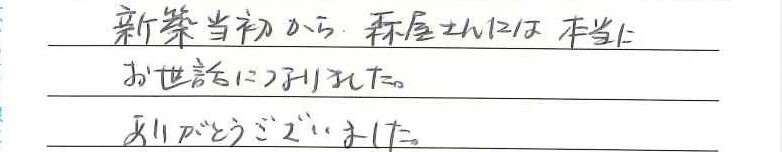 新築当初から、森屋さんには本当に
お世話になりました。
ありがとうございました。